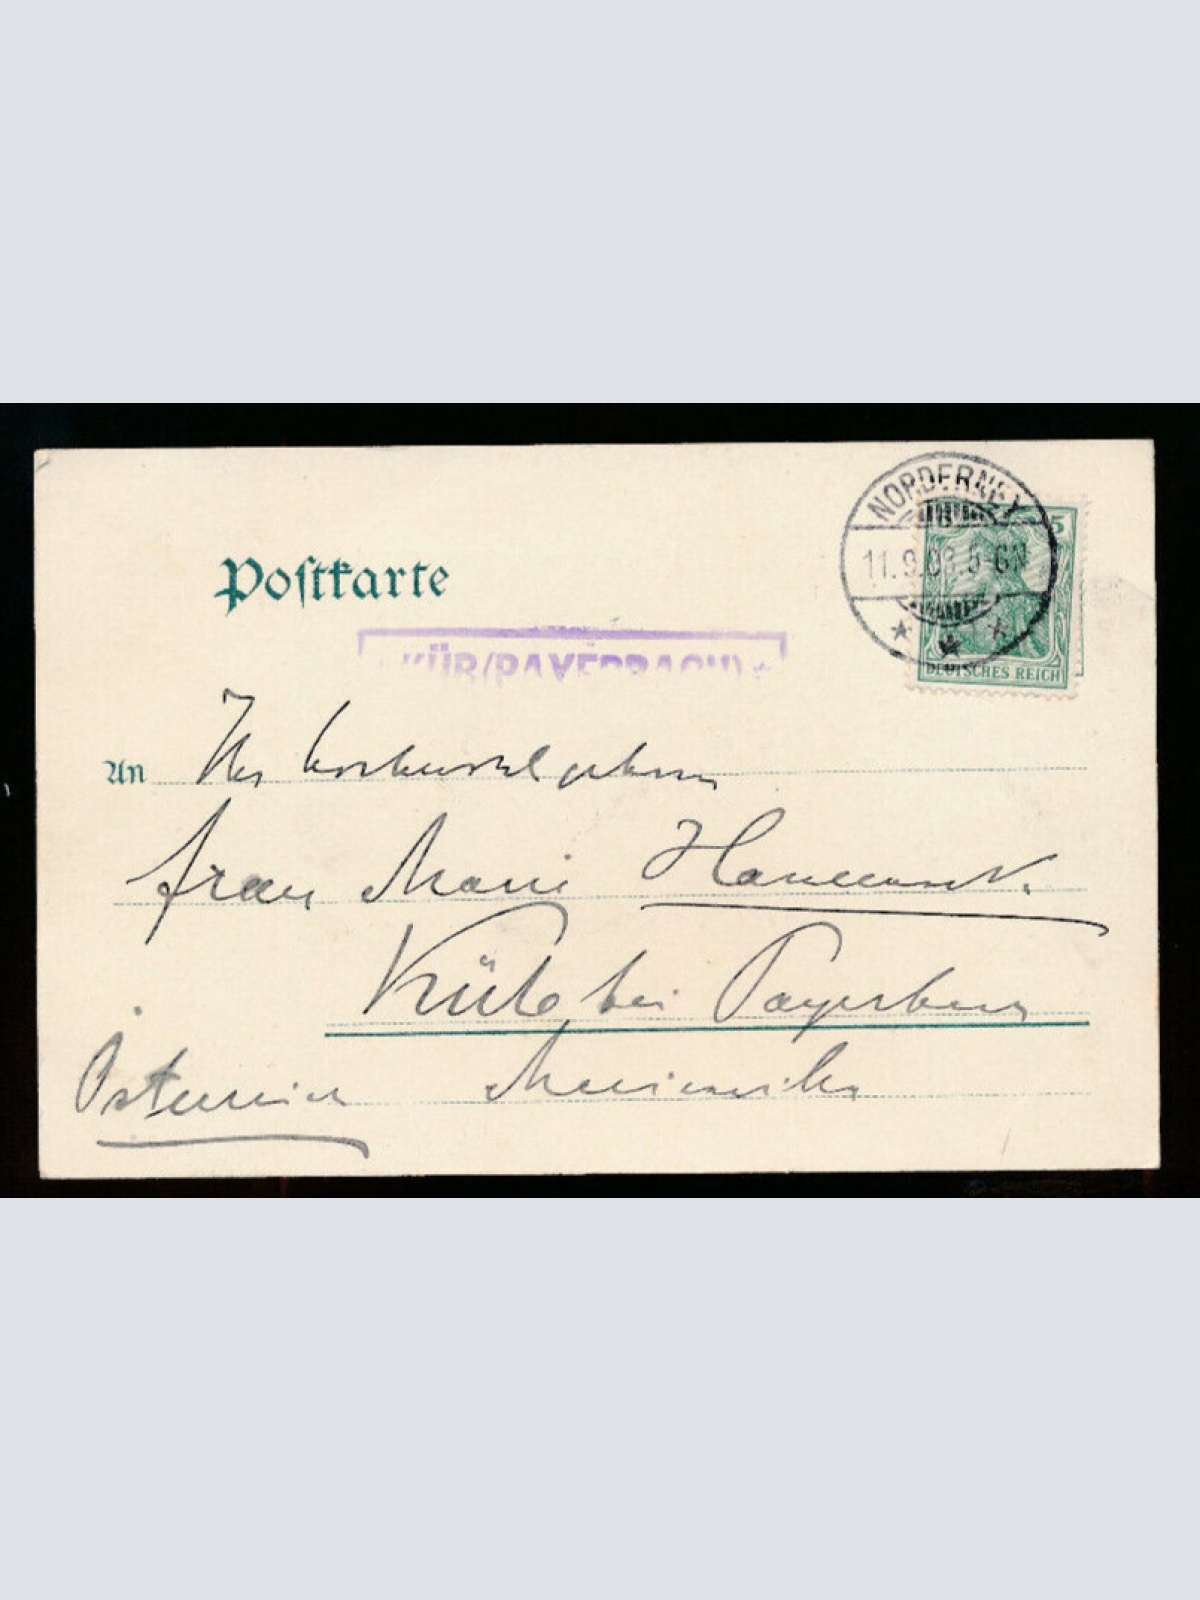 NORDERNEY
11.9.03.5-6N
5
DEUTSCHES REICH
Postkarte
KÜB/PAYERBACH)
An Ihr hochwohlgeboren
Frau Marie
Küb bei Payerbach
Österreich